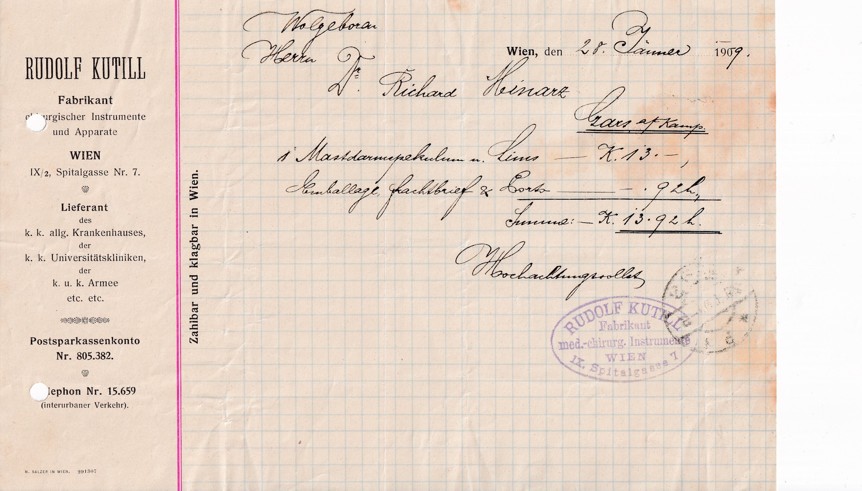 RUDOLF KUTILL
Fabrikant
chirurgischer Instrumente
und Apparate
WIEN
IX/2, Spitalgasse Nr. 7.
Lieferant
des
k. k. allg. Krankenhauses,
der
k. k. Universitätskliniken,
der
k. u. k. Armee
etc. etc.
Postsparkassenkonto
Nr. 805.382.
Telephon Nr. 15.659
(interurbaner Verkehr).
Zahlbar und klagbar in Wien.
Wolgeboren
Herrn Dr. Richard Heinarz
Wien, den 28. Jänner 1909.
Gars a/Kamp.
1 Mastdarmspekulum n. Sims — K. 13.—,
Emballage, frachtbrief & Porto —. 92h,
Summe: — K. 13.92 h.
Hochachtungsvollst
RUDOLF KUTILL
Fabrikant
med.-chirurg. Instrumente
WIEN
IX. Spitalgasse 7